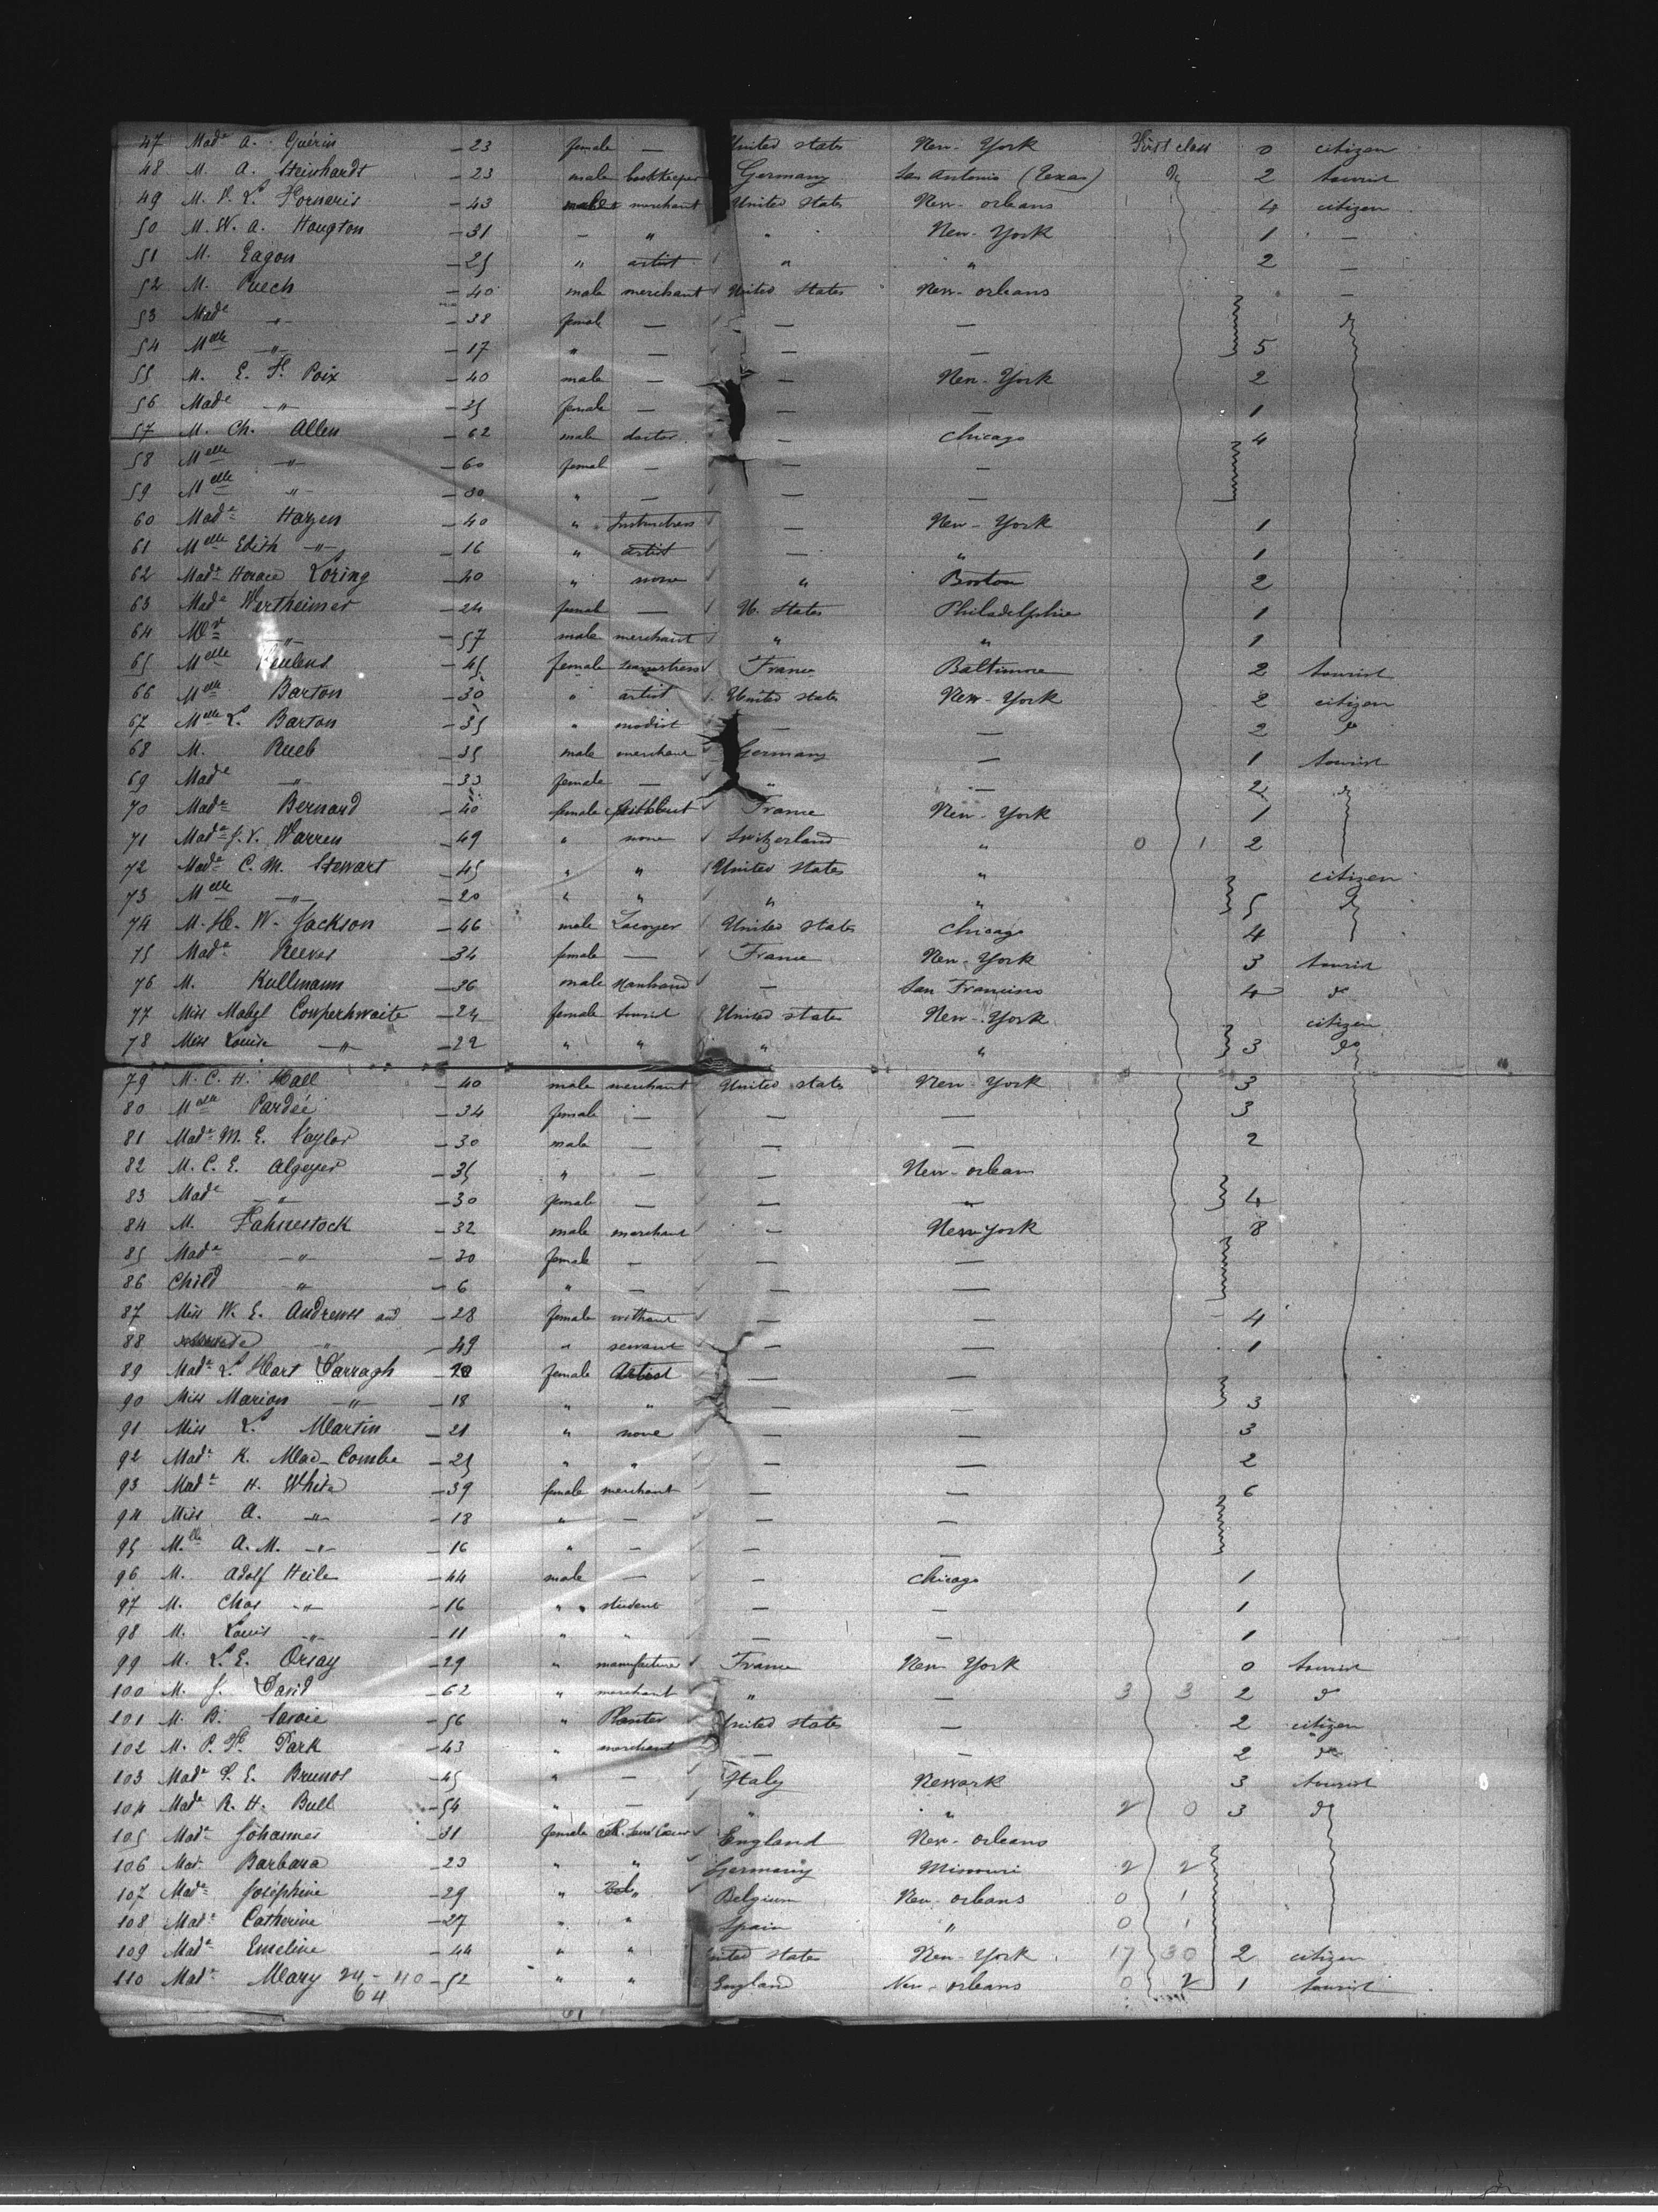 47 Made A. Guérin — 23 female — United States New-York First class 0 citizen
48 M. A. Steinhardt — 23 male bookkeeper Germany San Antonio (Texas) d° 2 tourist
49 M. V. L. Fornaris — 43 male merchant United States New-orleans 4 citizen
50 M. W. A. Hougton — 31 — " " New-York 1 —
51 M. Eagon — 25 " artist " " 2 —
52 M. Puech — 40 male merchant United States New-orleans —
53 Made -"- — 38 female — — — d°
54 Melle -"- — 17 " — — — 5
55 M. E. F. Poix — 40 male — — New-York 2
56 Made -"- — 25 female — — — 1
57 M. Ch. Allen — 62 male doctor — Chicago 4
58 Melle -"- — 60 femal — — —
59 Melle -"- — 30 " — — —
60 Made Hazen — 40 " Instructress — New-York 1
61 Melle Edith -"- — 16 " artist — " 1
62 Made Horace Loring — 40 " none " Boston 2
63 Made Wertheimer — 24 femal — U. States Philadelphie 1
64 -"- — 57 male merchant " " 1
65 Melle — 45 female seamstress France Baltimore 2 tourist
66 Melle Barton — 30 " artist United States New-York 2 citizen
67 Melle L. Barton — 35 " modist — — 2 d°
68 M. Rueb — 35 male merchant Germany — 1 tourist
69 Made -"- — 33 female — " — 2 d°
70 Made Bernard — 40 female France New-York 1
71 Made J. V. Warren — 49 " none Switzerland " 0 1 2
72 Made C. M. Stewart — 45 " " United States " citizen
73 Melle -"- — 20 " " " " 5 d°
74 M. H. W. Jackson — 46 male Lawyer United States Chicago 4
75 Made Reeves — 34 female — France New-York 3 tourist
76 M. Kullmann — 36 male — San Francisco 4 d°
77 Miss Mabel Cowperhwaite — 24 female tourist United States New-York citizen
78 Miss Louise -"- — 22 " " " " 3 d°
79 M. C. H. Hall — 40 male merchant United States New-York 3
80 Melle Pardée — 34 female — — — 3
81 Made M. E. Kaylor — 30 male — — — 2
82 M. C. E. Algeyer — 35 " — — New-orleans
83 Made -"- — 30 female — — " 4
84 M. Fahnestock — 32 male merchant — New York 8
85 Made -"- — 30 female — — —
86 Child -"- — 6 " — — —
87 Miss W. E. Andrews and — 28 female without — — 4
88 -"- — 49 " servant — — 1
89 Made L. Hart Darragh — female Artist — —
90 Miss Marion -"- — 18 " " — — 3
91 Miss L. Martin — 21 " none — — 3
92 Made K. Mac-Combe — 25 " " — — 2
93 Made H. White — 39 female merchant — — 6
94 Miss A. -"- — 18 " — — —
95 Melle A. M. -"- — 16 " — — —
96 M. Adolf Heile — 44 male — — Chicago 1
97 M. Chas -"- — 16 " student — — 1
98 M. Louis -"- — 11 " " — — 1
99 M. L. E. Orsay — 29 " manufacturer France New York 0 tourist
100 M. J. David — 62 " merchant " — 3 3 2 d°
101 M. B. Savoie — 56 " Planter United States — 2 citizen
102 M. P. H. Park — 43 " merchant — — 2 d°
103 Made S. E. Brunos — 45 " — Italy Newark 3 tourist
104 Made R. H. Bull — 54 " — " " 2 0 3 d°
105 Made Johannes — 31 female England New-orleans
106 Mad. Barbara — 23 " " Germany Missouri 2 2
107 Made Joséphine — 29 " Belgium New-orleans 0 1
108 Made Catherine — 27 " " Spain " 0 1
109 Made Emeline — 44 " " United States New-York 17 30 2 citizen
110 Made Mary 24 - 40 — 52 " " England New-orleans 0 2 1 tourist
64
61